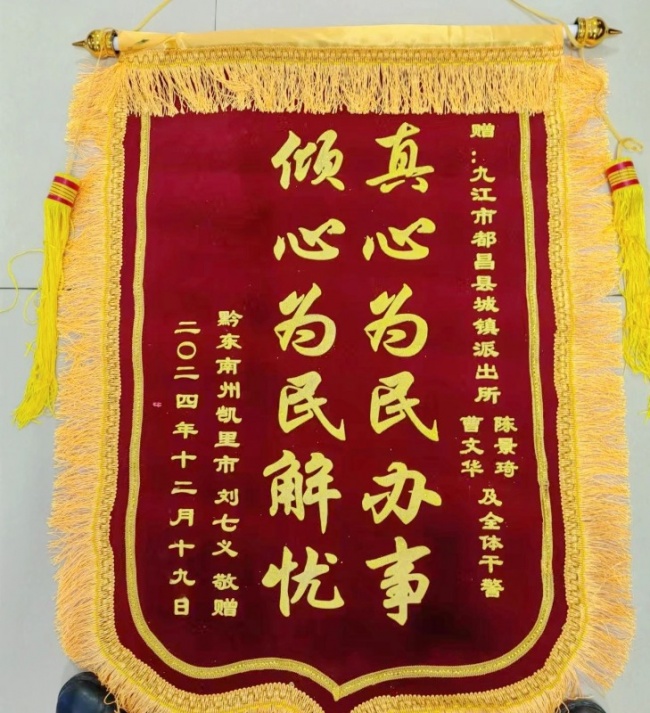 赠：九江市都昌县城镇派出所 陈景琦 曹文华 及全体干警
真心为民办事
倾心为民解忧
黔东南州凯里市 刘七义 敬赠
二〇二四年十二月十九日